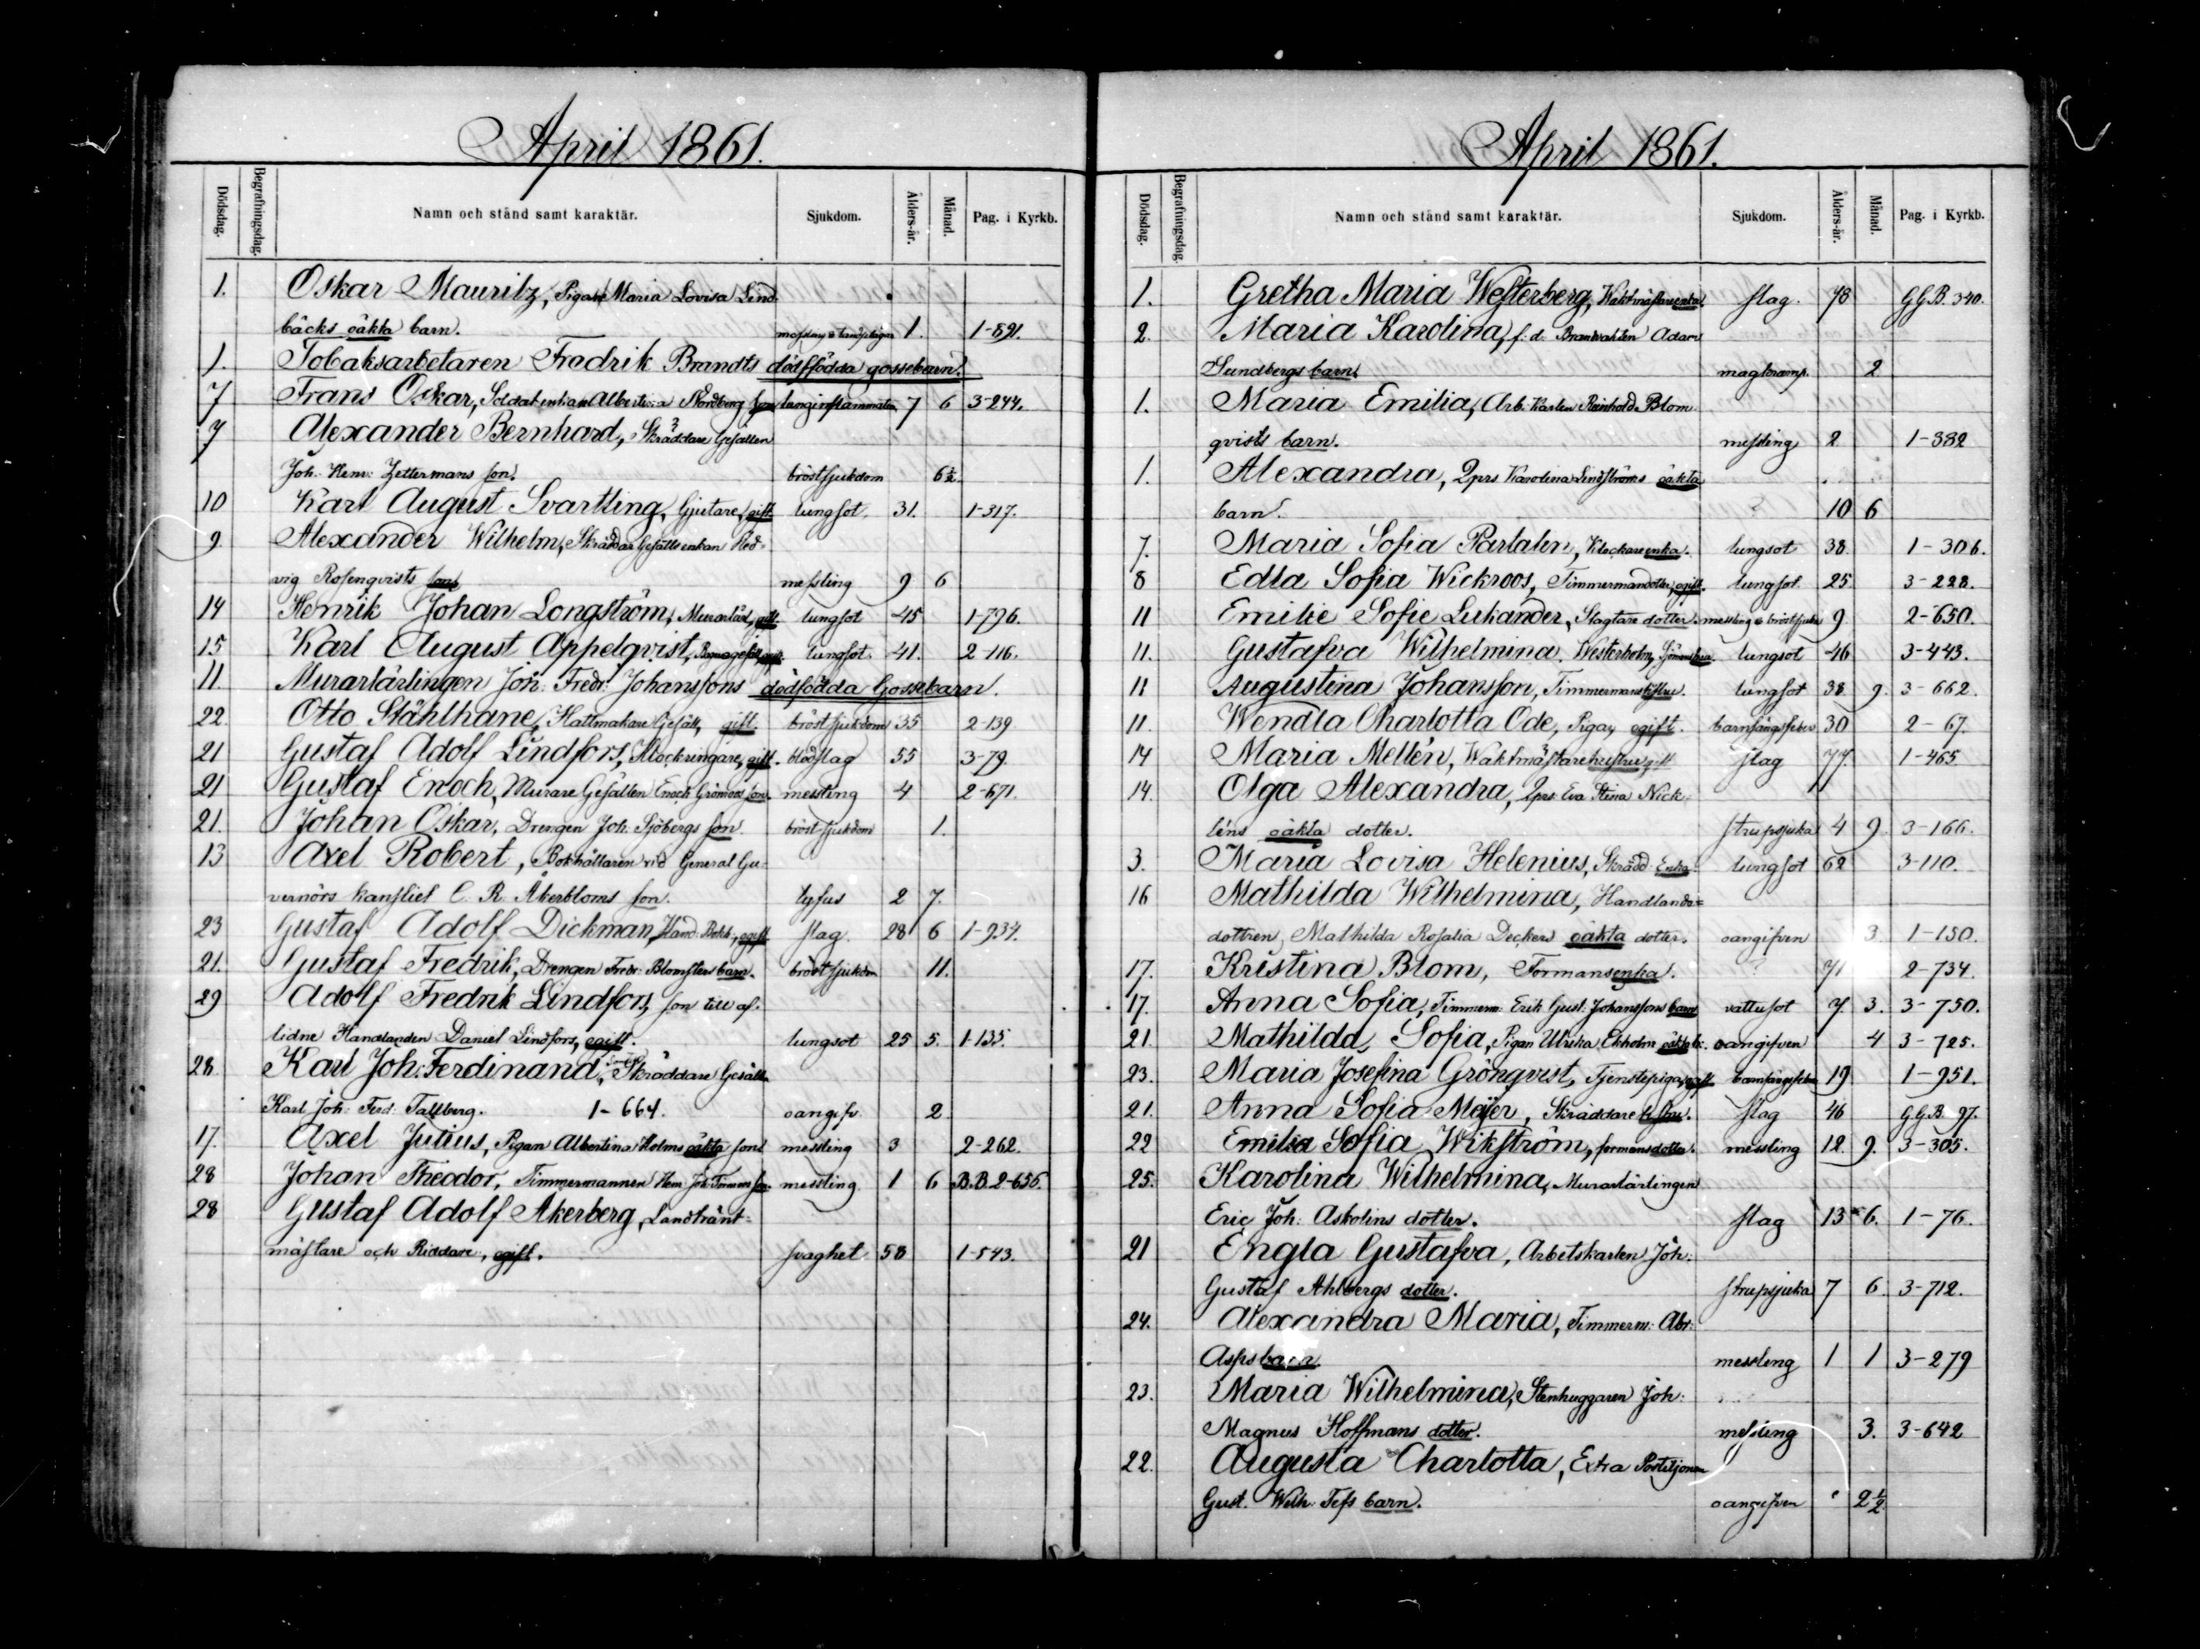 April 1861.
Dödsdag. Begrafningsdag. Namn och stånd samt karaktär. Sjukdom. Ålders-år. Månad. Pag. i Kyrkb.
1. Oskar Mauritz, Pigans Maria Lovisa Lind
bäcks oäkta barn. 1. 1-891.
1. Tobaksarbetaren Fredrik Brandts dödffödda gossebarn.
7 Frans Oskar, Soldatenkans Albertina Nordberg son lunginflammation 7 6 3-244.
7 Alexander Bernhard, Skräddare Gesällen
Joh. Henr. Zettermans son. bröstsjukdom 6½
10 Karl August Svartling, Gjutare, gift. lungsot. 31. 1-317.
9. Alexander Wilhelm, Skräddar Gesällsenkan Hed-
vig Rosenqvists son messling 9 6
14 Henrik Johan Longström, Murarlärl, gift. lungsot 45 1-796.
15 Karl August Appelqvist, gift. lungsot. 41. 2-116.
11. Murarlärlingen Joh. Fredr. Johanssons dödfödda Gossebarn.
22. Otto Stählhane, Hattmakare Gesäll, gift. bröstsjukdom 35 2-139
21 Gustaf Adolf Lindfors, Klockringare, gift. blodslag 55 3-79.
21 Gustaf Enoch, Murare Gesällen Enoch Grönroos son. messling 4 2-671.
21. Johan Oskar, Drengen Joh. Sjöbergs son. bröstsjukdom 1.
13 Axel Robert, Bokhållaren vid General Gu-
vernörs kansliet C. R. Åkerbloms son. tyfus 2 7.
23 Gustaf Adolf Dickman, Hand. Bokh., ogift slag. 28 6 1-934.
21. Gustaf Fredrik, Drengen Fredr. Blomsters barn. bröstsjukdm 11.
29 Adolf Fredrik Lindfors, son till af-
lidne Handlanden Daniel Lindfors, ogift. lungsot 25 5. 1-135.
28 Karl Joh: Ferdinand, Skräddare Gesälln
Karl Joh: Ferd: Tallberg. 1-664. oangifv. 2
17. Axel Julius, Pigan Albertina Holms oäkta son messling 3 2-262.
28 Johan Theodor, Timmermannen Hen. Joh. son. messling 1 6 B.B.2-656.
28 Gustaf Adolf Åkerberg, Landtränt-
mästare och Riddare, ogift. svaghet 58 1-543.
April 1861.
Dödsdag. Begrafningsdag. Namn och stånd samt karaktär. Sjukdom. Ålders-år. Månad. Pag. i Kyrkb.
1. Gretha Maria Westerberg, Waktmästareenka slag. 78 G.G.B. 340.
2. Maria Karolina, f. d. Brandvakten Adam
Sundbergs barn. magkramp. 2
1. Maria Emilia, Arb. Karlen Reinhold Blom
qvists barn. messling 2 1-382
1. Alexandra, Qprs Karolina Lindströms oäkta
barn. ? 10 6
7. Maria Sofia Partalen, Klockareenka. lungsot 38. 1-306.
8 Edla Sofia Wickroos, Timmermandotter, ogift. lungsot. 25 3-228.
11 Emilie Sofie Lukander, Slagtare dotter. messling & bröstsjukd 9. 2-650.
11. Gustafva Wilhelmina Westerholm, lungsot 46 3-443.
11 Augustina Johansson, Timmermanshustru. lungsot 38 9. 3-662.
11. Wendla Charlotta Ode, Piga, ogift. barnsängsfeber 30 2-67.
14 Maria Mellén, Waktmästarehustru, gift slag 77 1-465
14. Olga Alexandra, Qprs Eva Stina Nick-
léns oäkta dotter. strupsjuka 4 9. 3-166.
3. Maria Lovisa Helenius, Skrädd. Enka lungsot 62 3-110.
16 Mathilda Wilhelmina, Handlands-
dottren Mathilda Rosalia Deckers oäkta dotter. oangifven 3. 1-150.
17. Kristina Blom, Formansenka. ? 71 2-734.
17. Anna Sofia, Timmerm. Erik Gust. Johanssons barn vattusot 7. 3. 3-750.
21. Mathilda Sofia, Pigan Ulrika Ekholm oäkta b. oangifven 4 3-725.
23. Maria Josefina Grönqvist, Tjenstepiga, ogift barnsängsfeber 19 1-951.
21. Anna Sofia Mejer, Skräddare hustru. slag 46 G.G.B. 97.
22 Emilia Sofia Wikström, formansdotter. messling 12. 9. 3-305.
25. Karolina Wilhelmina, Murarlärlingen
Eric Joh: Askolins dotter. slag 13 6. 1-76.
21 Engla Gustafva, Arbetskarlen Joh:
Gustaf Ahlbergs dotter. strupsjuka 7 6. 3-712.
24. Alexandra Maria, Timmerm. Abr:
Asps barn. messling 1 1 3-279
23. Maria Wilhelmina, Stenhuggaren Joh:
Magnus Hoffmans dotter. messling 3. 3-642
22. Augusta Charlotta, Extra Postiljonen
Gust. Wilh. Tefs barn. oangifven 2½